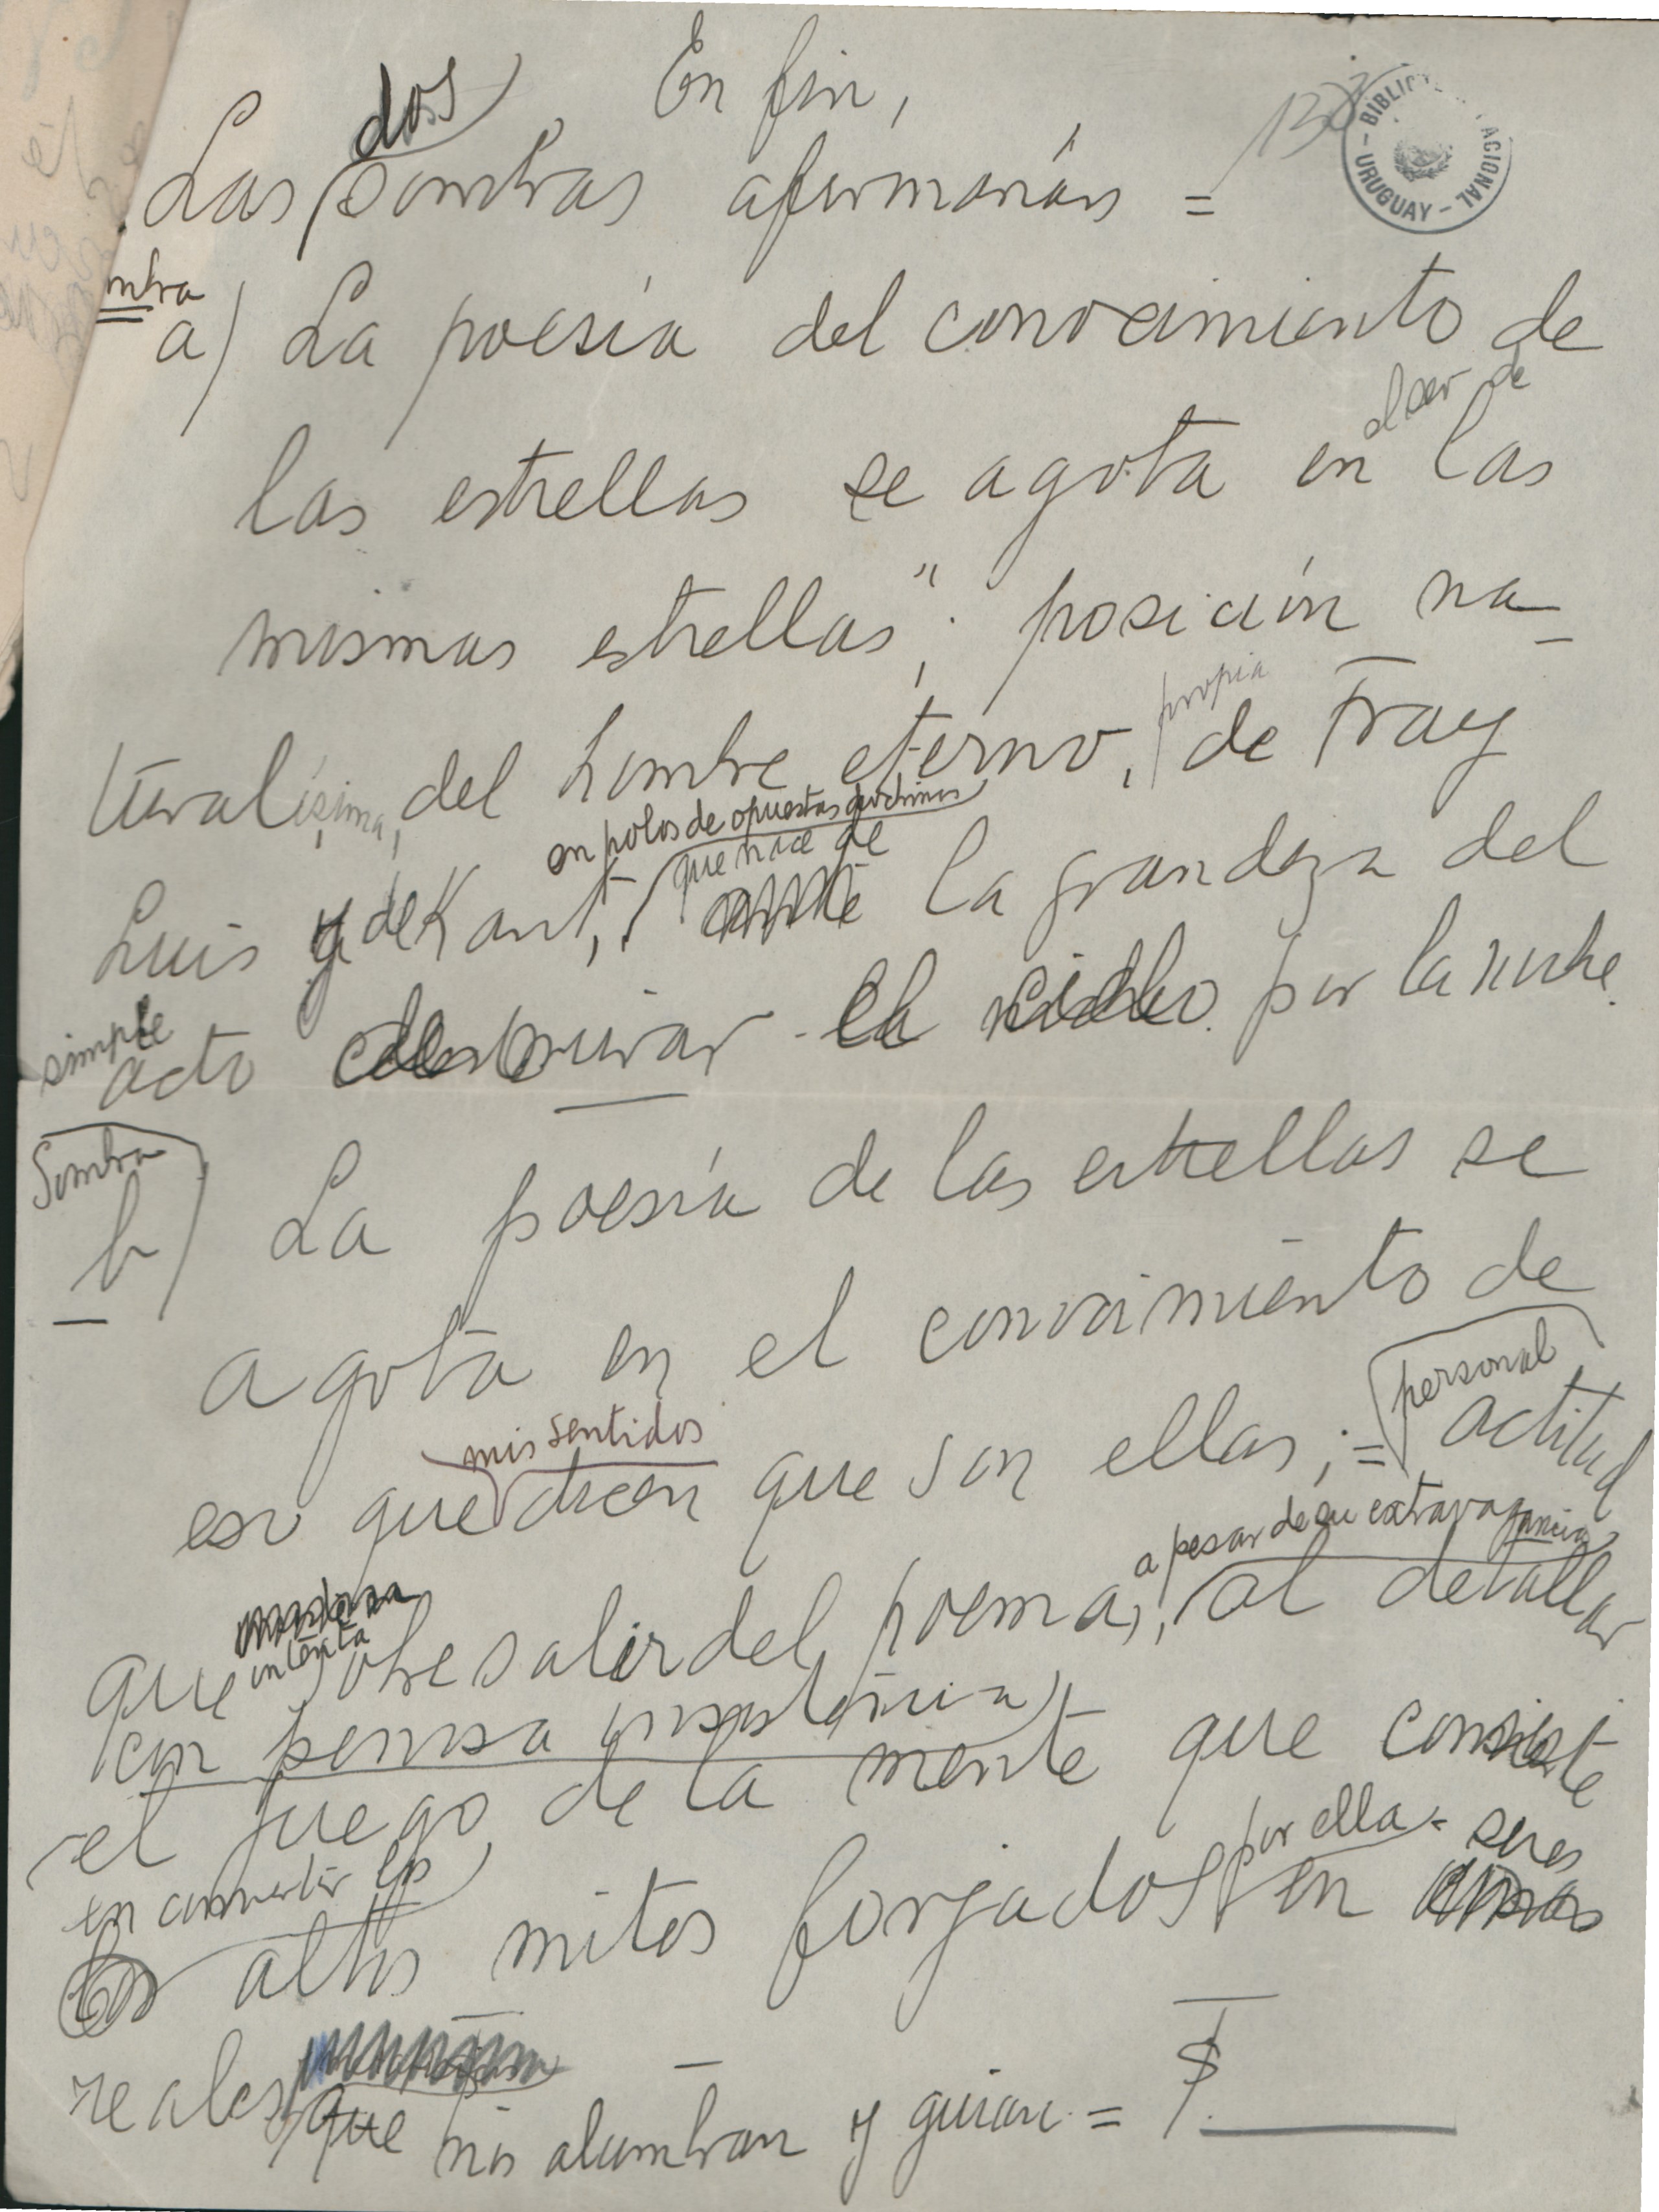 dos En fin,
132
BIBLIOTECA NACIONAL
- URUGUAY -
Las sombras afirmarán =
mbra
a) La poesía del conocimiento de
el ser de
las estrellas se agota en las
mismas estrellas"; posición na-
propia
turalísima, del hombre eterno, de Fray
en polos de opuestas doctrinas
que nace de
Luis y de Kant, la grandeza del
simple
acto de mirar el cielo por la noche.
Sombra
b) La poesía de las estrellas se
agota en el conocimiento de
personal
mis sentidos
eso que dicen que son ellas; = actitud
a pesar de su extravagancia
intenta
que sobresalir del poema, al detallar
con penosa insistencia
el juego de la mente que consiste
por ella = seres
en convertir los
altos mitos forjados en
reales que nos alumbran y guían =